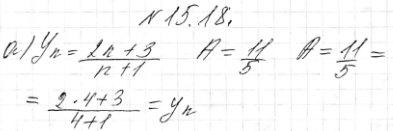 №15.18.
а) Yn = 2n+3/n+1 A = 11/5 A = 11/5 =
= 2·4+3/4+1 = yn